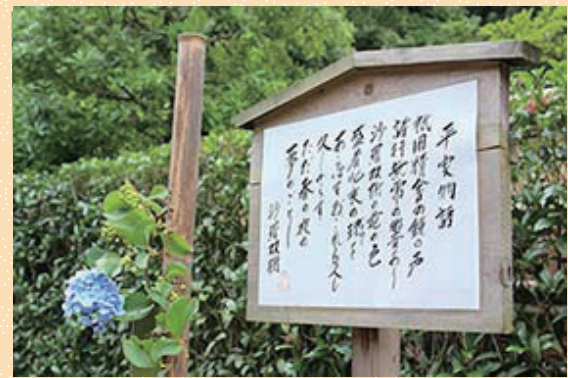 平家物語
祇園精舎の鐘の声
諸行無常の響あり
沙羅双樹の花の色
盛者必衰の理を
あらはすおごれる人も
久しからず
ただ春の夜の
夢のごとし
沙羅双樹